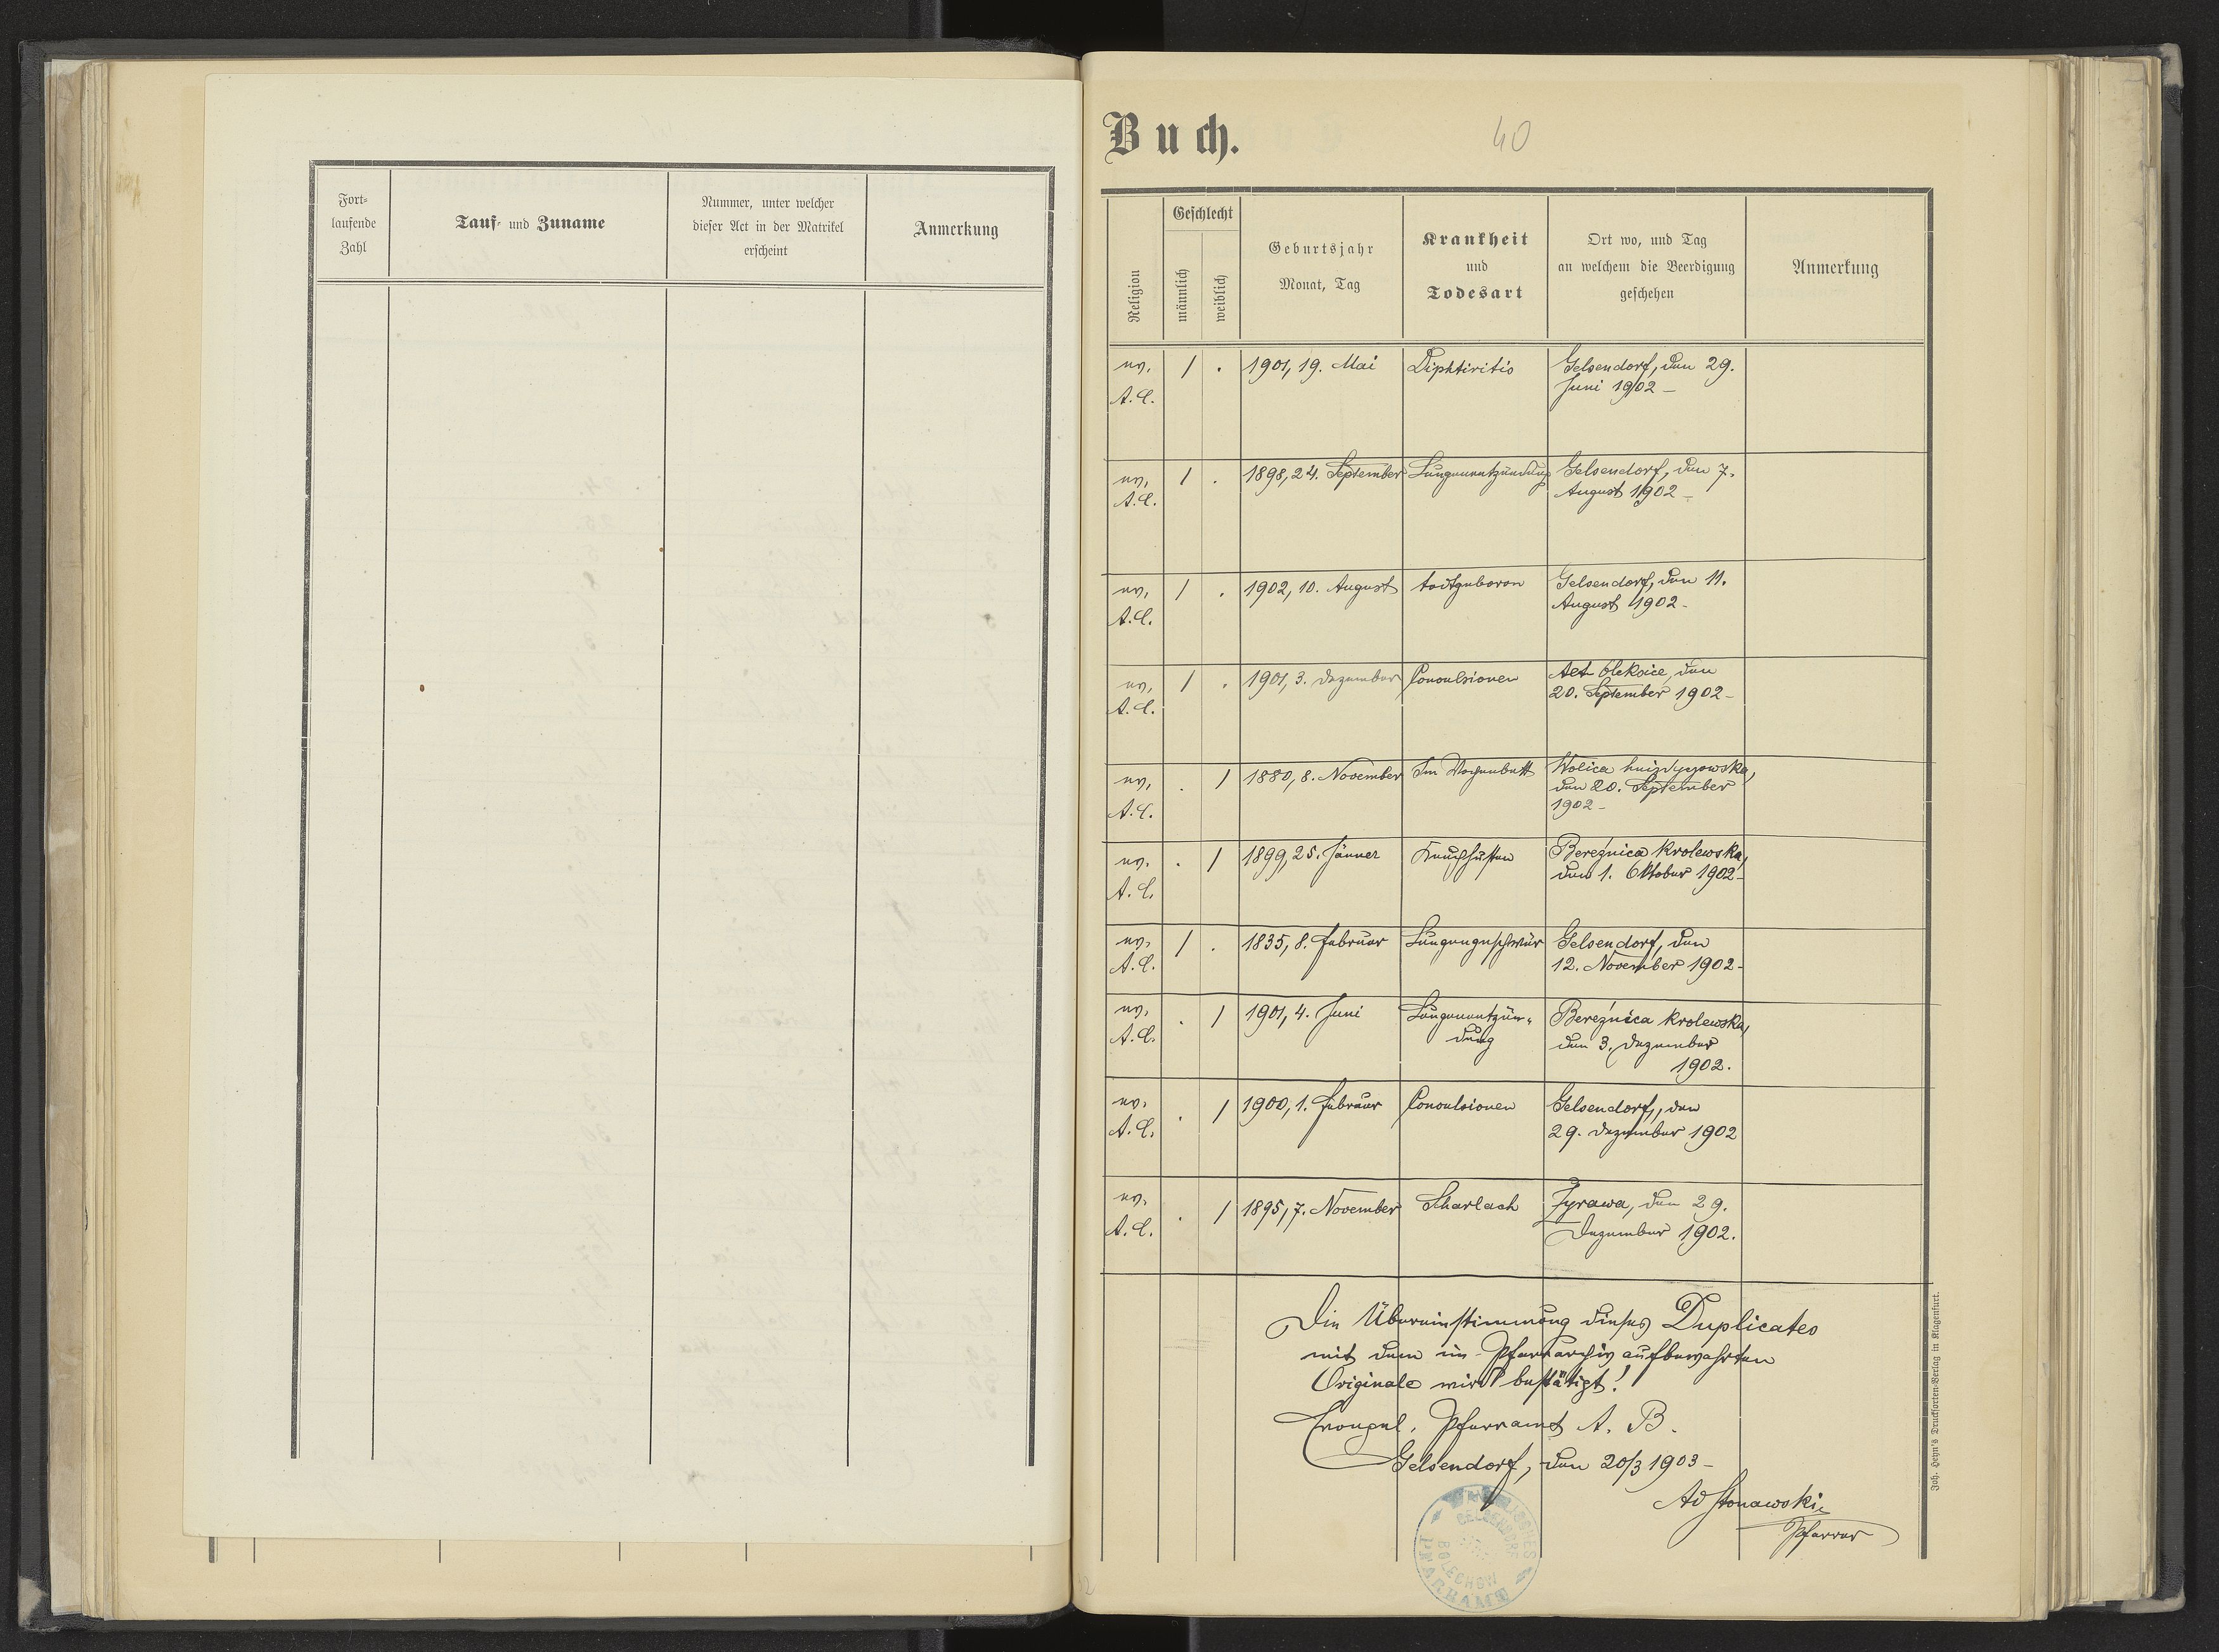 Fort-
laufende
Zahl
Tauf- und Zuname
Nummer, unter welcher
dieser Act in der Matrikel
erscheint
Anmerkung
Buch.
40
Religion
Geschlecht
männlich
weiblich
Geburtsjahr
Monat, Tag
Krankheit
und
Todesart
Ort wo, und Tag
an welchem die Beerdigung
geschehen
Anmerkung
ev. 1 . 1901, 19. Mai Diphtiritis Gelsendorf, den 29.
A.C. Juni 1902 –
ev. 1 . 1898, 24. September Lungenentzündung Gelsendorf, den 7.
A.C. August 1902 –
ev. 1 . 1902, 10. August todtgeboren Gelsendorf, den 11.
A.C. August 1902 –
ev. 1 . 1901, 3. Dezember Convulsionen Alt Oleksice, den
A.C. 20. September 1902 –
ev. . 1 1880, 8. November Im Wochenbett Wolica hnizdyczowska,
A.C. den 20. September
1902 –
ev. . 1 1899, 25. Jänner Keuchhusten Bereźnica krolewska,
A.C. den 1. Oktober 1902 –
ev. 1 . 1835, 8. Februar Lungengeschwür Gelsendorf, den
A.C. 12. November 1902 –
ev. . 1 1901, 4. Juni Lungenentzün- Bereźnica krolewska,
A.C. dung den 3. Dezember
1902.
ev. . 1 1900, 1. Februar Convulsionen Gelsendorf, den
A.C. 29. Dezember 1902
ev. . 1 1895, 7. November Scharlach Zyrawa, den 29.
A.C. Dezember 1902.
Die Übereinstimmung dieses Duplicates
mit dem im Pfarrarchiv aufbewahrten
Originale wird bestätigt!
Evangel. Pfarramt A. B.
Gelsendorf, den 20/3 1903 –
Pfarrer
GELSENDORF
BOLECHOW
PFARRAMT
Joh. Heyn's Drucksorten-Verlag in Klagenfurt.